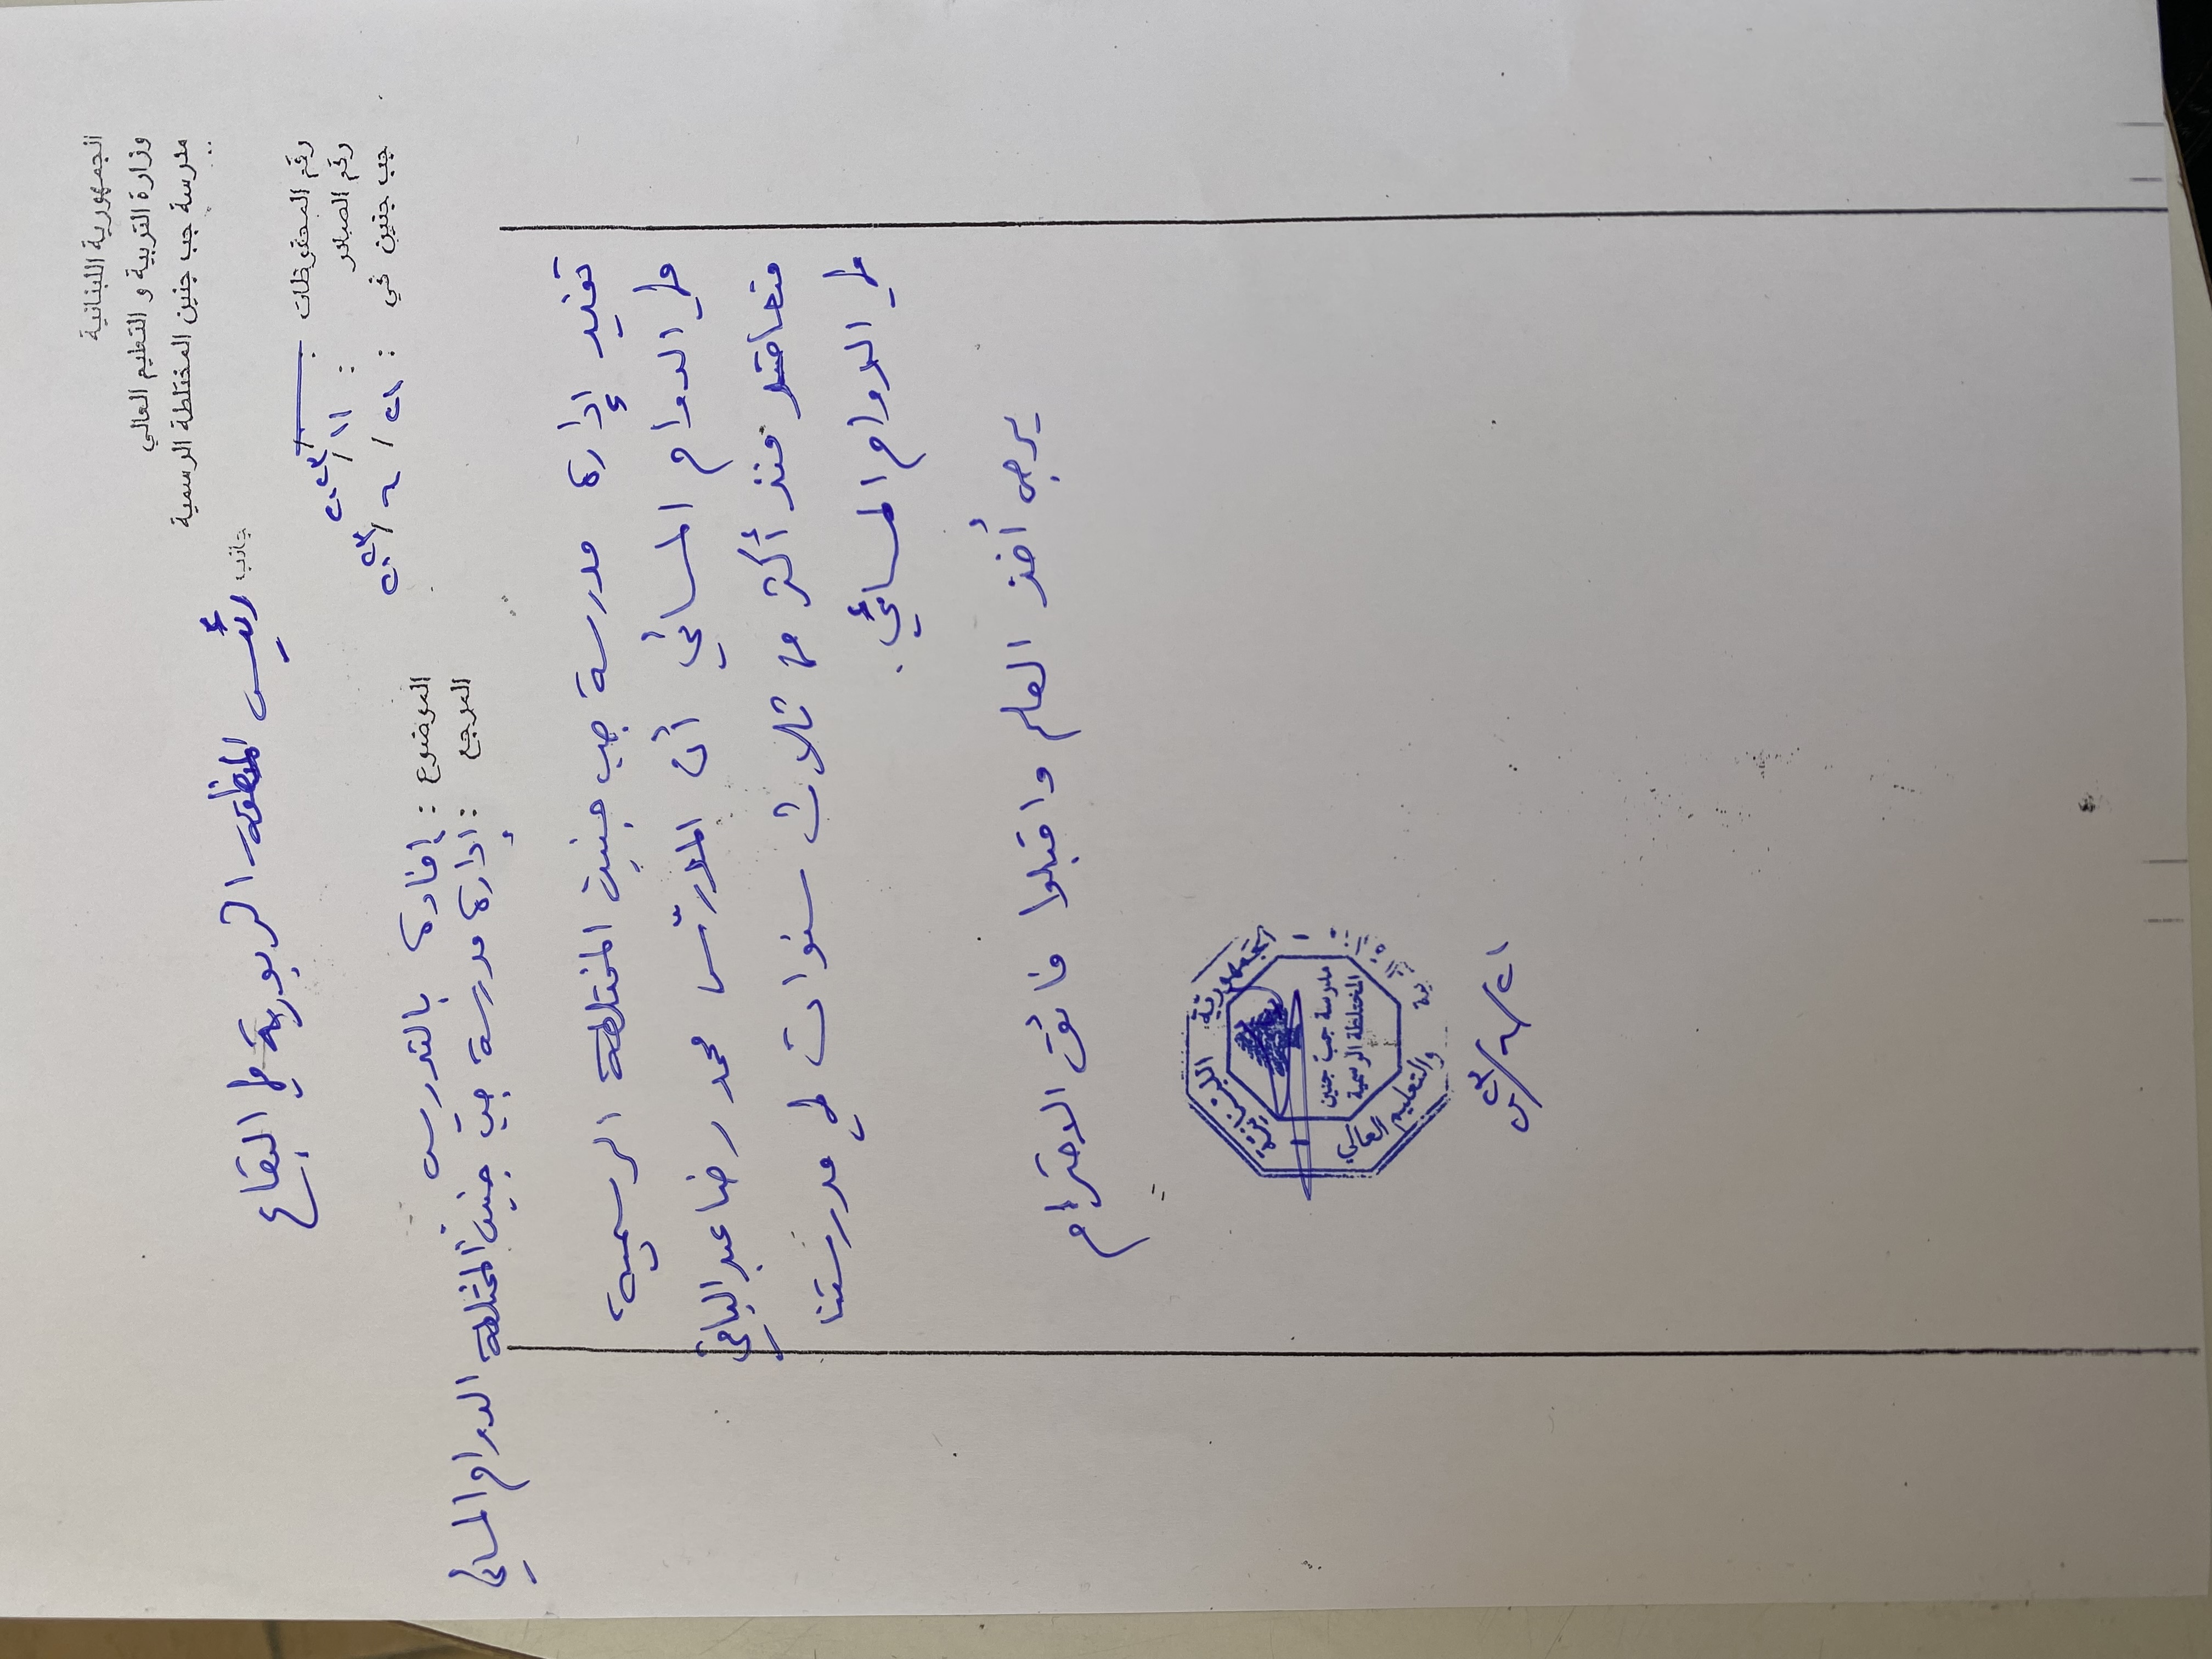 الجمهورية اللبنانية
وزارة التربية و التعليم العالي
مدرسة جب جنين المختلطة الرسمية
جانب رئيس المنطقة التربوية في البقاع
رقم المحفوظات :
رقم الصادر : ١١/٢٠٢٣
جب جنين في : ٢١/٢/٢٠٢٣
الموضوع : إفادة بالتدريس
المرجع : إدارة مدرسة جب جنين المختلطة الدوام المسائي
تفيد إدارة مدرسة جب جنين المختلطة الرسمية،
في الدوام المسائي أن المدرّس محمد رضا عبد الباقي
متعاقد منذ أكثر من ثلاث سنوات في مدرستنا
في الدوام المسائي.
يرجى أخذ العلم واقبلوا فائق الاحترام
الجمهورية اللبنانية
مدرسة جب جنين
المختلطة الرسمية
والتعليم العالي
٢١/٢/٢٣